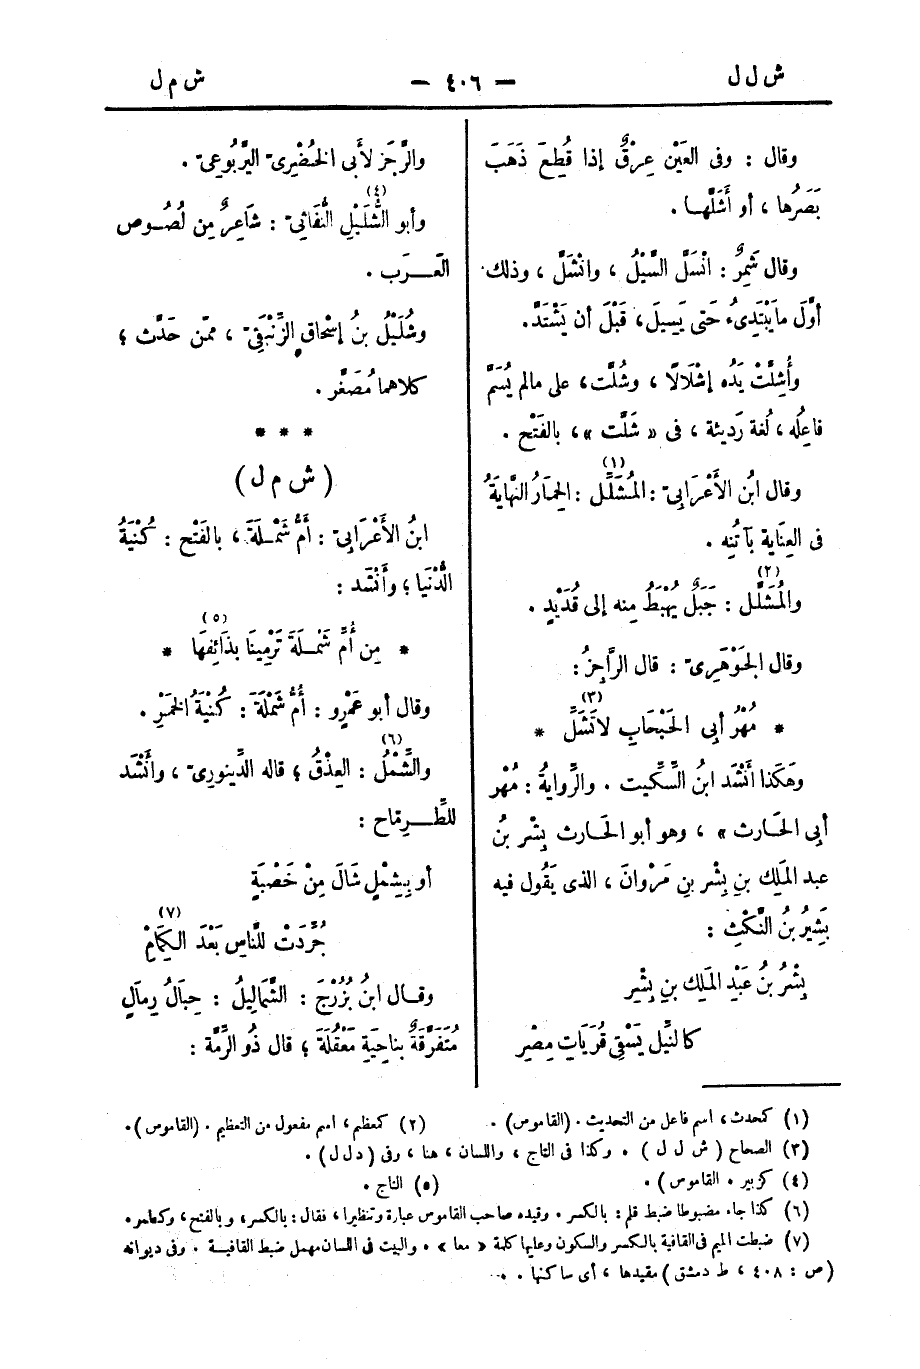 ش ل ل — ٤٠٦ — ش م ل
وقال : وفى العَيْن عِرْقٌ إذا قُطِعَ ذَهَبَ
بَصَرُها ، أو أَشَلَّها .
وقال شَمِرٌ : انْسَلَّ السَّيْلُ ، وانْشَلَّ ، وذلك
أوَّلَ مايَبْتَدِىءُ حَتى يَسِيلَ، قَبْلَ أن يَشْتَدَّ.
وأُشِلَّتْ يَدُه إشْلَالًا ، وشُلَّت، على مالم يُسَمَّ
فاعِلُه ، لُغة رَديئة ، فى « شَلَّت » ، بالفَتْح .
وقال ابنُ الأَعْرَابىّ : المُشَلِّل (١) : الحِمَارُ النِّهايَةُ
فى العِنَاية بآتُنِه .
والمُشَلَّل (٢) : جَبَلٌ يُهْبَطُ منه إلى قُدَيْدٍ .
وقال الجَوْهَرِىّ : قال الرَّاجِزُ :
* مُهْرَ أبِى الحَبْحَابِ لاتَشَلِّ (٣) *
وهَكَذا أنْشَد ابنُ السِّكّيت . والرِّوايةُ : مُهْر
أبى الحَارث » ، وهو أبو الحَارث بِشْر بنُ
عبد المَلِك بنِ بِشْر بنِ مَرْوانَ ، الذى يَقُول فيه
بَشِيرُ بنُ النِّكْثِ :
بِشْرُ بنُ عَبْدِ المَلِك بنِ بِشْرِ
كالنِّيل يَسْقِى قَرَيَاتِ مِصْرِ
والرَّجَز لأَبى الخُضْرِىّ اليَرْبُوعِىّ .
وأبو الشُّلَيْلِ (٤) النُّفَاثِىّ : شَاعِرٌ مِن لُصُوص
العَرَب .
وشُلَيْلُ بنُ إسْحاق الزَّنْبَقِىّ ، ممّن حَدَّث ؛
كلاهما مُصَغَّر .
* * *
( ش م ل )
ابنُ الأَعْرَابِىّ : أمُّ شَمْلَةَ ، بالفَتْح : كُنْيَةُ
الدُّنْيا ؛ وأَنْشَد :
* مِن أُمِّ شَمْلَةَ تَرْمِينَا بذَائِفِهَا (٥) *
وقال أبو عَمْرٍو : أمُّ شَمْلَةَ : كُنْيَةُ الخَمْر .
والشِّمْلُ (٦) : العِذْقُ ؛ قاله الدِّينورىّ ، وأنْشَد
للطِّرِمّاح :
أو بِشِمْلٍ شَالَ مِنْ خَصْبَةٍ
جُرِّدَتْ للنَّاسِ بَعْدَ الكِمَامْ (٧)
وقال ابنُ بُزُرْجَ : الشَّمَالِيلُ : حِبَالُ رِمالٍ
مُتَفَرِّقَةٌ بناحِيَةِ مَعْقُلَةَ ؛ قال ذُو الرِّمَّة :
(١) كمحدث، اسم فاعل من التحديث . (القاموس) . (٢) كمعظم، اسم مفعول من التعظيم . (القاموس).
(٣) الصحاح ( ش ل ل ) . وكذا فى التاج ، واللسان ، هنا ، وفى ( دلل ) .
(٤) كزبير . القاموس ) . (٥) التاج .
(٦) كذا جاء مضبوطا ضبط قلم : بالكسر . وقيده صاحب القاموس عبارة وتنظيرا ، فقال : بالكسر، وبالفتح ، وكطمر.
(٧) ضبطت الميم فى القافية بالكسر والسكون وعليها كلمة « معا » . والبيت فى اللسان مهمل ضبط القافية . وفى ديوانه
( ص : ٤٠٨ ، ط دمشق ) مقيدها ، أى ساكنها .